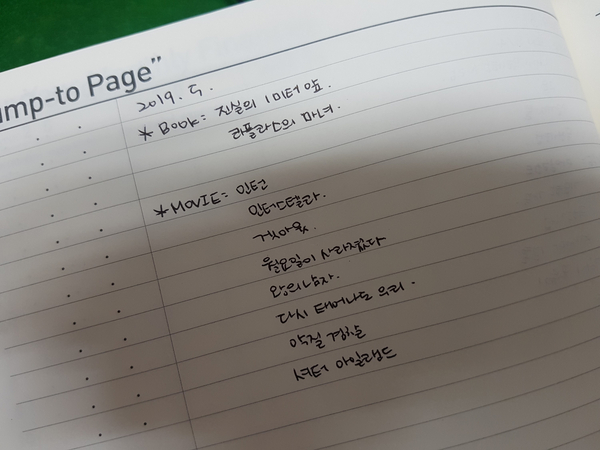 ump-to Page"
2019. 5.
* BOOK : 진실의 1미터 앞.
라플라스의 마녀.
* MOVIE : 인턴
인터스텔라.
겟아웃.
월요일이 사라졌다
왕의남자.
다시 태어나도 우리.
악질 경찰
셔터 아일랜드